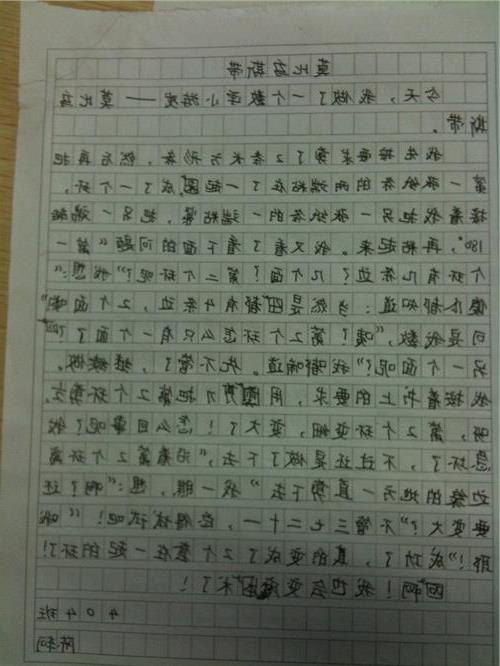 莫比乌斯带
今天，我做了一个数学小游戏——莫比乌
斯带。
我先按要求剪了2条长方形条，然后再把
第一张纸条的两端粘在了一起圈成了一个环。
接着我把另一张纸条的一端粘紧，把另一端翻
180°，再粘起来。我又看了看下面的问题“第一
个环有几条边？几个面？第二个环呢？”我想：“
傻瓜都知道：当然是都有4条边，2个面啦”
可是我数，“咦？第2个环怎么只有一个面了？
另一个面呢？”我嘟喃道。先不管了，继续做。
我按着书上的要求，用剪刀把第2个环剪
啊，第2个环变细，变大了！怎么回事呢？我
坏了，不过还是做了下去，“沿着第2个环离
边缘的地方一直剪下去”我一瞧，想：“啊？还
要变大？”不管三七二十一，总得试试吧！“哦
耶！”成功了，真的变成了2个套在一起的环了！
啊！我也会变魔术了！
404班
陈